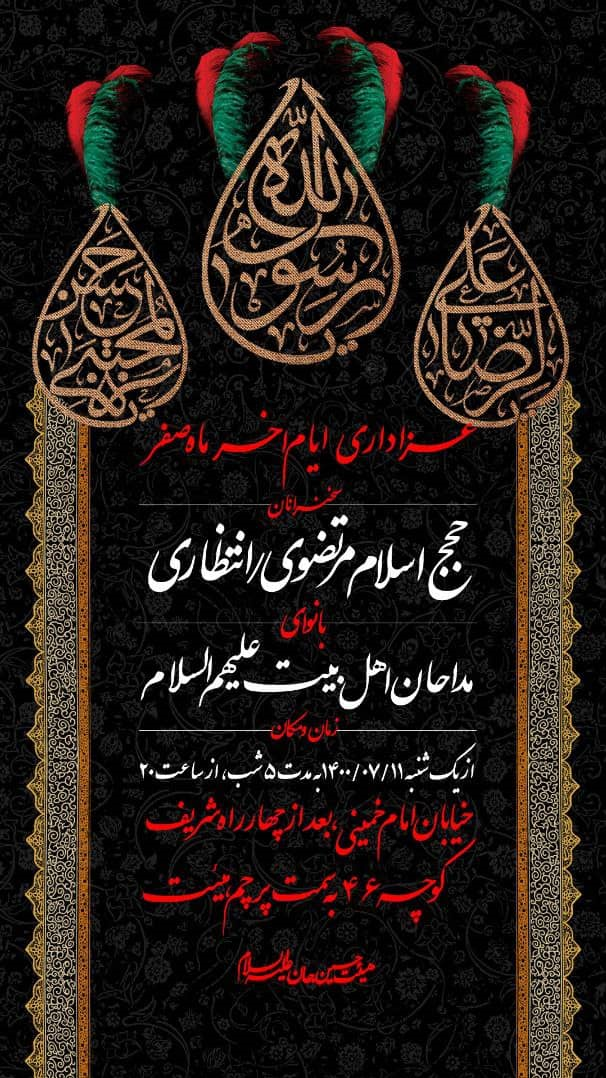 یا رسول الله
یا علی الرضا
یا حسن المجتبی
عزاداری ایام اخر ماه صفر
سخنرانان
حجج اسلام مرتضوی / انتظاری
بانوای
مداحان اهل بیت علیهم السلام
زمان و مکان
از یک شنبه ۱۴۰۰/۰۷/۱۱ به مدت ۵ شب، از ساعت ۲۰
خیابان امام خمینی، بعد از چهارراه شریف
کوچه ۴۶ به سمت پرچم هیئت
هیئت حسین جان علیه السلام